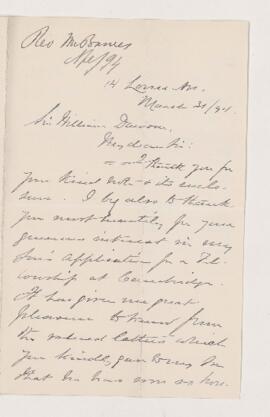 Rev Mr Barnes
Apl/94
14 Lorne Av.
March 31/94.
Sir William Dawson,
My dear Sir:
I thank you for
your kind note & its enclo-
sure. I beg also to thank
you most heartily for your
generous interest in my
son's application for a Fel-
lowship at Cambridge.
It has given me great
pleasure to learn from
the valued letter which
you kindly gave to my son
that he has won so hon-